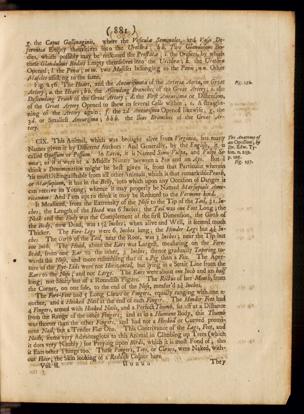 ( 881. )
g. the Caput Gallinaginis, where the Vesiculæ Seminales, and Vasa De-
ferentia Empty themselves into the Urethra; hh. Two Glandulous Bo-
dies, which possibly may be reckoned the Prostatæ; i. the Orifices, by which
these Glandulous Bodies Empty themselves into the Urethra; k. the Urethra
Opened; l. the Penis; mm. two Muscles belonging to the Penis; nn. Other
Muscles assisting to the same.
Fig. 156. The Heart, and the Aneurisma of the Arteria Aorta, or Great
Artery; a. the Heart; bb. the Ascending Branches of the Great Artery; c. the
Descending Trunk of the Great Artery; d. the First Aneurisma or Dilatation,
of the Great Artery Opened to shew its several Cells within; e. A straight-
ning of the Artery again; f. the 2d. Aneurisma Opened likewise; g. the
3d. or Smallest Aneurisma; hhh. the Iliac Branches of the Great Ar-
tery.
Fig. 156.
CIX. This Animal, which was brought alive from Virginia, has many
Names given it by Different Authors: And Generally, by the English, it is
called Opossum or Possum. In Latin, it is Named Semi-Vulpa, and Vulpi Si-
mia; as if it were of a Middle Nature between a Fox and an Ape. But I
think a Denomination might be best given it, from that Particular wherein
'tis most Distinguishable from all other Animals, which is that remarkable Pouch,
or Marsupium, it has in the Belly, into which upon any Occasion of Danger it
can receive its Young; whence it may properly be Named Marsupiale Ame-
ricanum: And I am apt to think it may be Reduced to the Vermine kind.
The Anatomy of
an Opossum, by
Dr. Edw. Ty-
son. n. 239.
p. 105.
Fig. 157.
It Measured, from the Extremity of the Nose to the Tip of the Tail, 31. In-
ches; the Length of the Head was 6 Inches; the Tail was one Foot Long; the
Neck and the Body was the Complement of the first Dimension, the Girth of
the Body, now Dead, was 15½ Inches; when alive and Well, it seemed much
Thicker. The Fore-Legs were 6. Inches long; the Hinder Legs but 4½ In-
ches. The Girth of the Tail, near the Root, was 3 Inches; near the Tip but
one Inch. The Head, about the Ears was Longish, measuring on the Fore-
Head, from one Ear to the other, 3. Inches; thence gradually Tapering to-
wards the Nose, and more resembling that of a Pig than a Fox. The Aper-
ture of the Eye-Lids were not Horizontal, but lying in a Streit Line from the
Ears to the Nose; and not Large. The Ears were about one Inch and an half
long; not sharp but of a Roundish Figure. The Rictus of her Mouth, from
the Corner, on one side, to the end of the Nose, measur'd 2½ Inches.
The Fore-Feet had 5 Long Claws or Fingers, equally ranging with one a-
nother, and a Hooked Nail at the end of each Finger. The Hinder Feet had
4 Fingers, armed with Hooked Nails, and a Perfect Thumb, set off at a Distance
from the Range of the other Fingers; and as in a Humane Body, this Thumb
was shorter than the other Fingers, and had not a Hooked or Curved promi-
nent Nail, but a Tender Flat One. This Contrivance of the Legs, Feet, and
Nails, seems very Advantageous to this Animal in Climbing up Trees (which
it does very Nimbly) for Preying upon Birds, which it is most Fond of; tho
it Eats other Things too. These Fingers, Toes, or Claws, were Naked, with-
out Hair; the Skin looking of a Reddish Colour here.
Vol. II. Uuuuu They